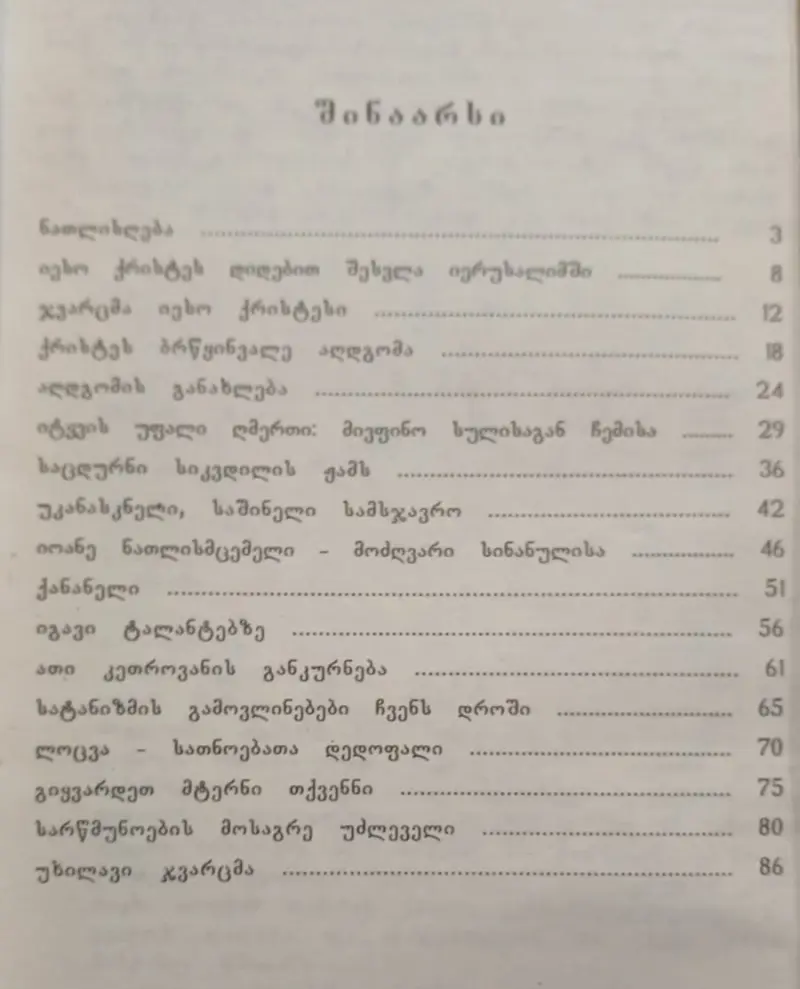 შინაარსი
ნათლისღება ........ 3
იესო ქრისტეს დიდებით შესვლა იერუსალიმში ........ 8
ჯვარცმა იესო ქრისტესი ........ 12
ქრისტეს ბრწყინვალე აღდგომა ........ 18
აღდგომის განახლება ........ 24
იტყვის უფალი ღმერთი: მიეფინო სულისაგან ჩემისა ........ 29
საცდურნი სიკვდილის ჟამს ........ 36
უკანასკნელი, საშინელი სამსჯავრო ........ 42
იოანე ნათლისმცემელი - მოძღვარი სინანულისა ........ 46
ქანანელი ........ 51
იგავი ტალანტებზე ........ 56
ათი კეთროვანის განკურნება ........ 61
სატანიზმის გამოვლინებები ჩვენს დროში ........ 65
ლოცვა - სათნოებათა დედოფალი ........ 70
გიყვარდეთ მტერნი თქვენნი ........ 75
სარწმუნოების მოსაგრე უძლეველი ........ 80
უხილავი ჯვარცმა ........ 86